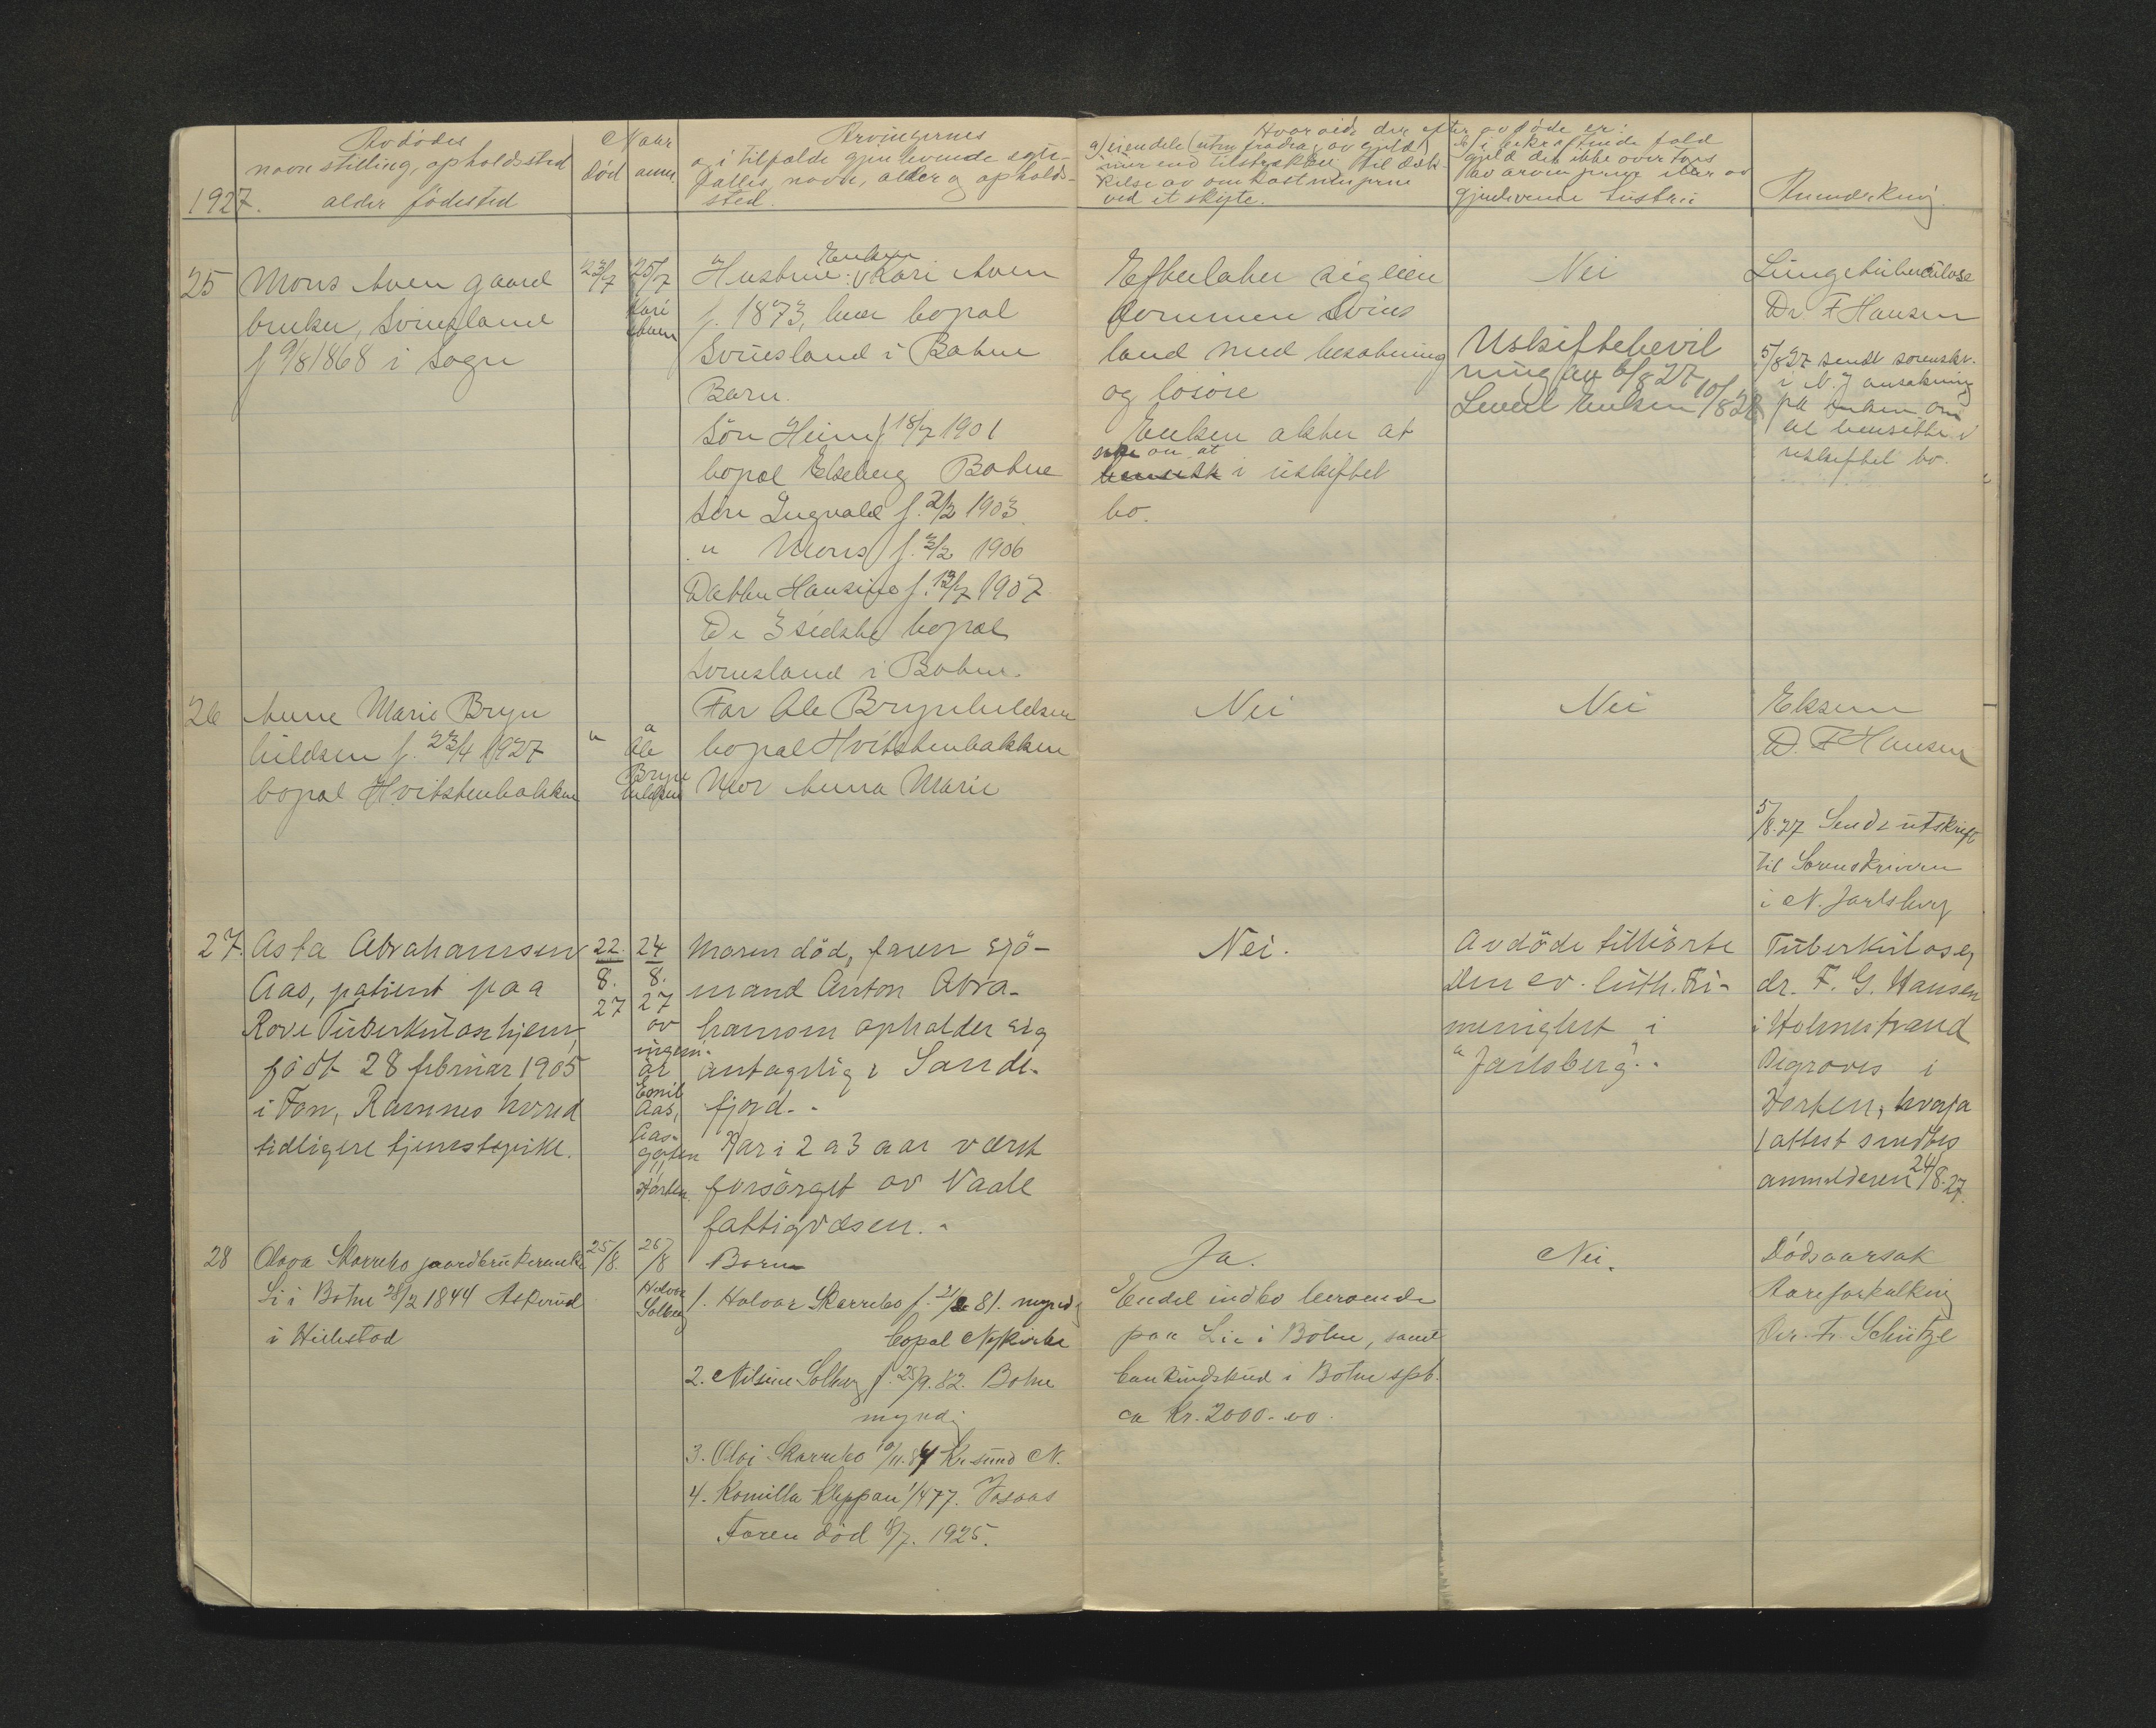 1927.
Avdödes
navn stilling, opholdssted
alder födested
Naar
död anm.
Arvingernes
og i tilfælde gjenlevende egte-
fælles navn, alder og opholds-
sted.
Hvorvidt der efter avdöde er:
a) eiendele (uten fradrag av gjæld)
mer end tilstrækkelig til dæk-
kelse av omkostningerne
ved et skifte.
b) i bekræftende fald
gjæld det ikke overtages
av arvingerne eller av
gjenlevende
Anmerkning.
25
Mons Aven gaard
bruker, Svinesland
f 9/8 1868 i Sogn
23/7
25/7
Kari
Aven
Enken
Hustru: Kari Aven
f. 1873, bopæl
Svinesland i Botne
Barn.
Sön Heine f 18/7 1901
bopæl Ekeberg Botne
Sön Ingvald f. 2/2 1903
" Mons f. 3/2 1906
Datter Hansine f. 13/7 1907
De 3 sidste bopæl
Svinesland i Botne.
Efterlater sig eien
dommen Svines
land med besætning
og lösöre
Enken akter at
om at
i uskiftet
bo.
Nei
Uskiftebevil
ning av 6/8 27
Levert Enken 10/8 27
Lungetuberculose
Dr F Hansen
5/8 27 sendt sorenskr.
i N. J ansökning
fra enken om
at hensitte i
uskiftet bo.
26
Anne Marie Bryn
hildsen f. 23/4 1927
bopæl Hvitstenbakken
"
"
Ole
Bryn
hildsen
Far Ole Brynhildsen
bopæl Hvitstenbakken
Mor Anna Marie
Nei
Nei
Eksem
D. F Hansen
5/8.27 Sendt utskrift
til Sorenskriveren
i N. Jarlsberg
27.
Asta Abrahamsen
Aas, patient paa
Rove Tuberkulosehjem,
födt 28 februar 1905
i Fon, Ramnes herred
tidligere tjenestepike.
22.
8.
27
24
8.
27
av
ingeni-
ör
Emil
Aas,
Aas-
gaten
Horten.
Moren död, faren sjö-
mand Anton Abra-
hamsen opholder sig
antagelig i Sande-
fjord.
Har i 2 a 3 aar vært
forsörget av Vaale
fattigvæsen.
Nei.
Avdöde tilhörte
den ev. luth. Fri-
menighet i
"Jarlsberg".
Tuberkulose,
dr. F. G. Hansen
i Holmestrand
Begraves i
Horten, hvorfor
attest sendtes
anmelderen 24/8-27.
28
Olava Skarrebo gaardbrukerenke
Li i Botne 28/2 1844 Askerud
i Hillestad
25/8.
26/8
Halvor
Solberg
Barn
1. Halvor Skarrebo f. 2/2 81. myndig
bopæl Nykirke
2. Nilsine Solberg f. 25/9. 82. Botne
myndig
3. Olaf Skarrebo 10/11.84 Kr.sund N.
4. Komilla Kleppan 1/4 77. Vasaas
Faren död 18/7. 1925.
Ja.
Endel indbo beroende
paa Lie i Botne, samt
bankindskud i Botne spb.
ca Kr. 2000.00.
Nei.
Dödsaarsak
Aareforkalkning
Dr. Fr. Schütze